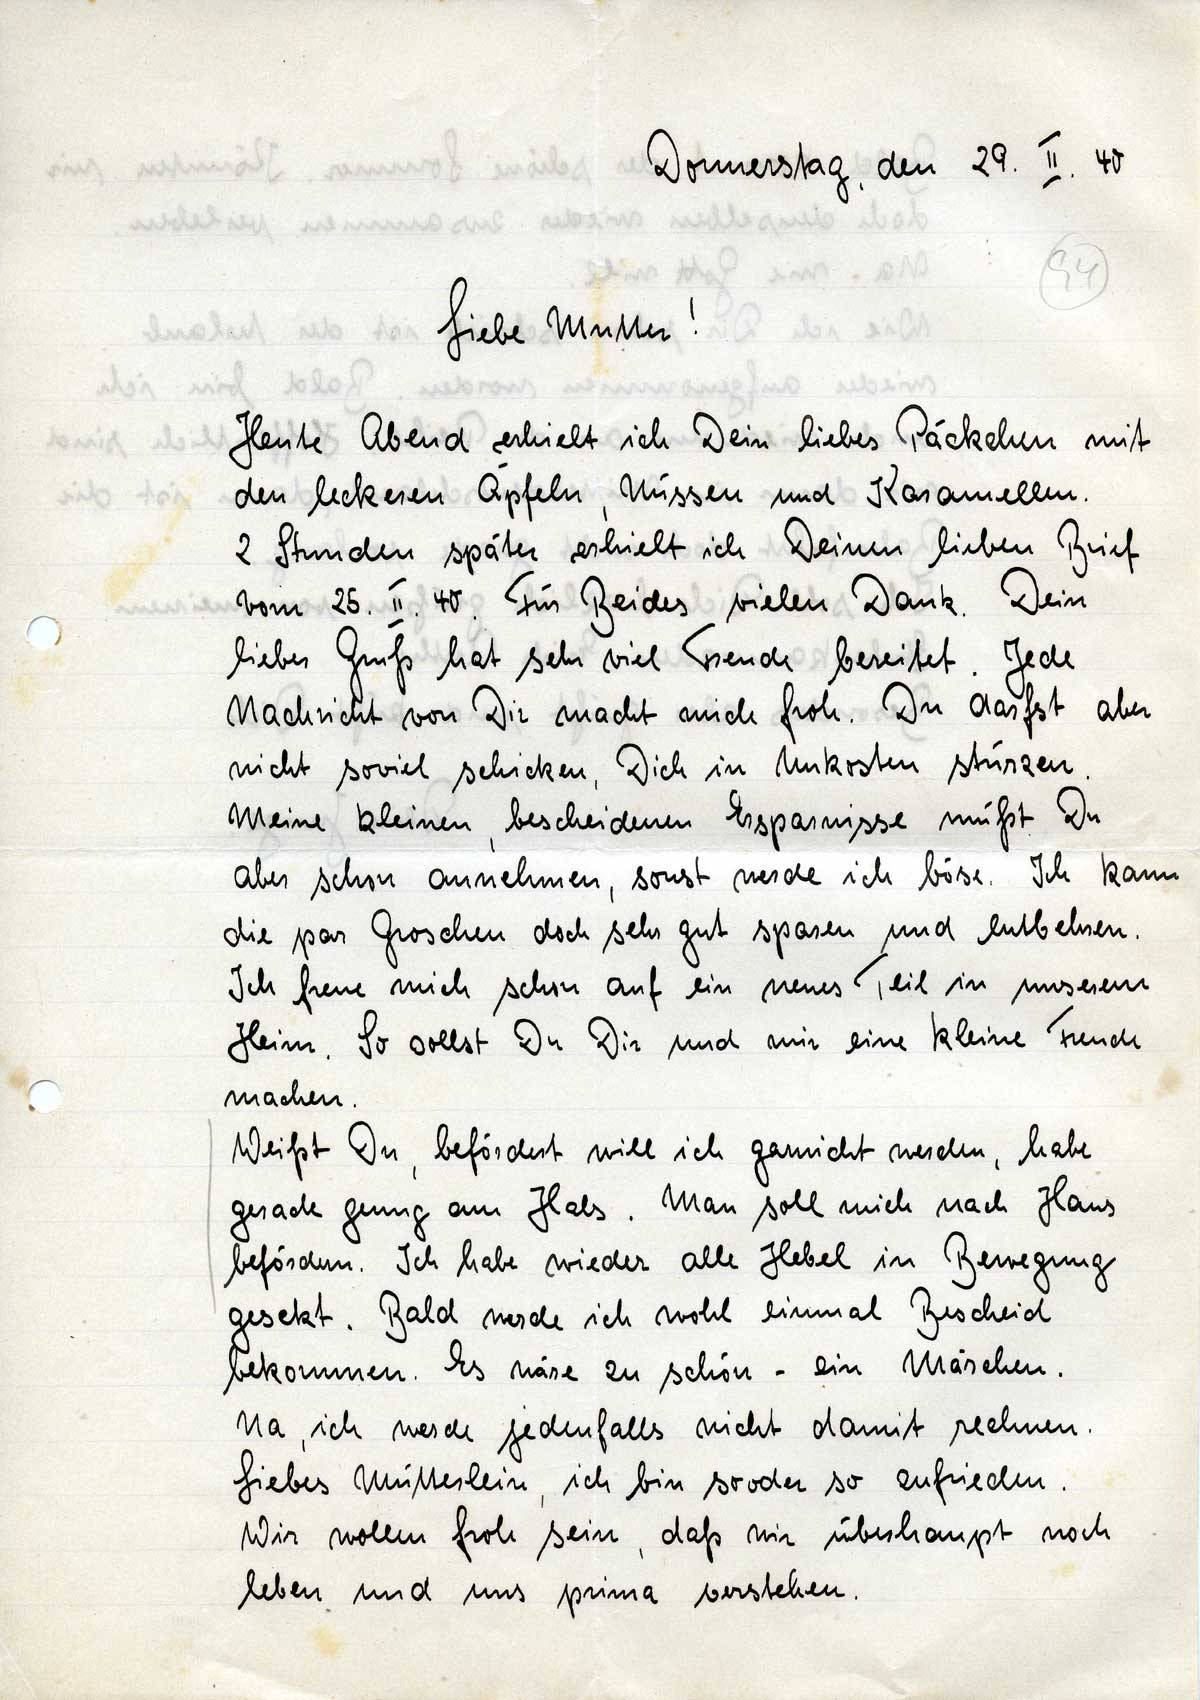 Donnerstag, den 29. II. 40
94
Liebe Mutter!
Heute Abend erhielt ich Dein liebes Päckchen mit
den leckeren Äpfeln, Nüssen und Karamellen.
2 Stunden später erhielt ich Deinen lieben Brief
vom 25. II. 40. Für Beides vielen Dank. Dein
lieber Gruß hat sehr viel Freude bereitet. Jede
Nachricht von Dir macht mich froh. Du darfst aber
nicht soviel schicken, Dich in Unkosten stürzen.
Meine kleinen, bescheidenen Ersparnisse mußt Du
aber schon annehmen, sonst werde ich böse. Ich kann
die par Groschen doch sehr gut sparen und entbehren.
Ich freue mich schon auf ein neues Teil in unserem
Heim. So sollst Du Dir und mir eine kleine Freude
machen.
Weißt Du, befördert will ich garnicht werden, habe
gerade genug am Hals. Man soll mich nach Haus
befördern. Ich habe wieder alle Hebel in Bewegung
gesetzt. Bald werde ich wohl einmal Bescheid
bekommen. Es wäre zu schön - ein Märchen.
Na, ich werde jedenfalls nicht damit rechnen.
Liebes Mütterlein, ich bin so oder so zufrieden.
Wir wollen froh sein, daß wir überhaupt noch
leben und uns prima verstehen.